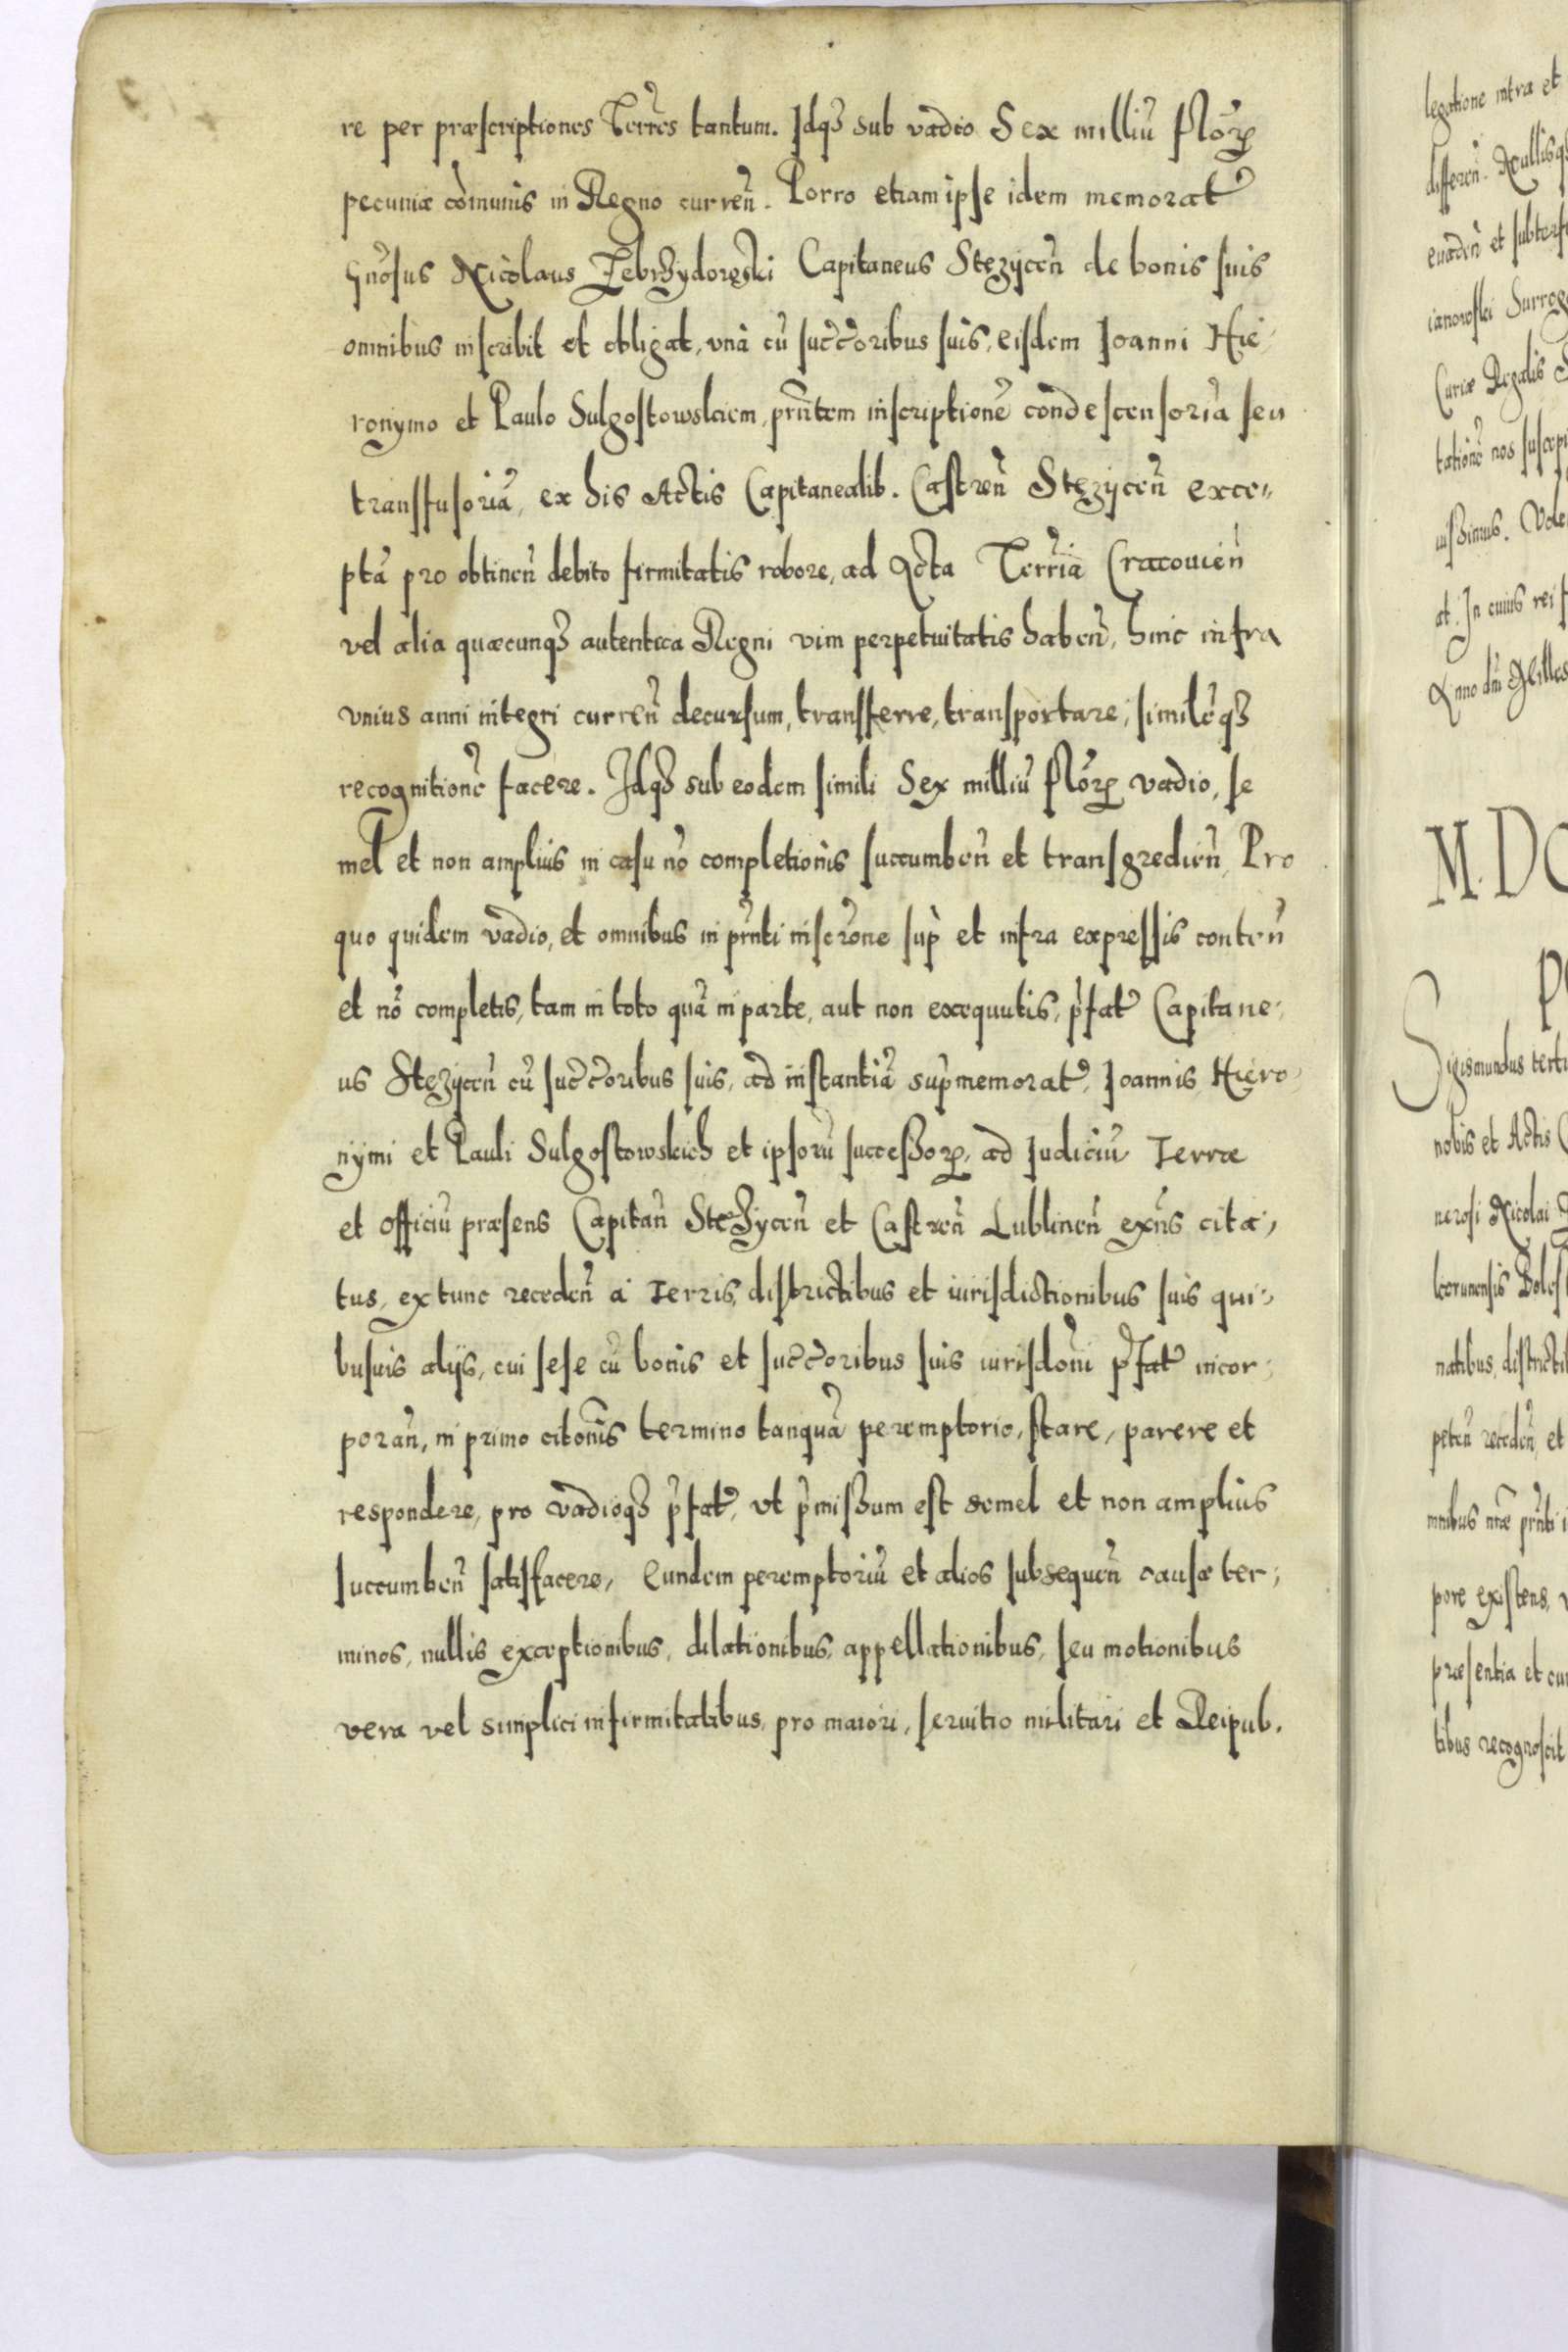 re per præscriptiones Terrēs tantum. Idqꝫ sub vadio Sex milliū floꝝ
pecuniæ cōmunis in Regno curreñ. Porro etiam ipse idem memorat9
Gnosus Nicolaus Zebrzydowski Capitaneus Stezyceñ de bonis suis
omnibus inscribit et obligat, vnà cū succ̄oribus suis, eisdem Ioanni Hie-
ronymo et Paulo Sulgostowskiem, pñtem inscriptionē condescensoriā seu
transfusoriā, ex his Actis Capitanealib. Castreñ Stezyceñ exce-
ptā pro obtineñ debito firmitatis robore, ad Acta Terria Cracouieñ
vel alia quæcunqꝫ autentica Regni vim perpetuitatis habeñ, hinc infra
vnius anni integri curreñ decursum, transferre, transportare, similēqꝫ
recognitionē facere. Idqꝫ sub eodem simili Sex milliū floꝝ vadio, se
mel et non amplius in casu nō completionis succumbeñ et transgredieñ, Pro
quo quidem vadio, et omnibus in pr̄nti inscr̄one sup̄ et infra expressis conteñ
et nō completis, tam in toto quā in parte, aut non exæquutis, p̄fat9 Capitane-
us Stezyceñ cū succ̄oribus suis, ad instantiā sup̄memorat9, Ioannis Hiero-
nymi et Pauli Sulgostowskich et ipsorū successoꝝ, ad Iudiciū Terræ
et officiū præsens Capitañ Stezyceñ et Castreñ Lublineñ exñs cita-
tus, ex tunc recedeñ à Terris, districtibus et iurisdictionibus suis qui-
busuis alijs, cui sese cū bonis et succ̄oribus suis iurisdoni p̄fat9 incor-
porañ, in primo citōnis termino tanquā peremptorio, stare, parere et
respondere, pro vadioqꝫ p̄fat9, vt p̄missum est semel et non amplius
succumbeñ satisfacere, Eundem peremptoriū et alios subsequeñ causæ ter-
minos, nullis exceptionibus, dilationibus, appellationibus, seu motionibus
vera vel simplici infirmitatibus, pro maiori, seruitio militari et Reipub.
legatione intra et
differeñ. Nullisqꝫ
euadeñ et subterfu
ianowski Surroga
Curiæ Regalis
tationē nos suscepi
uissimus.
at. In cuius rei
Anno dñi Milles
M.DC
Sigismundus terti
nobis et Actis
nerosi Nicolai
natibus, districti
peteñ recedeñ, et
mnibus
pore existens,
præsentia et
tibus recognoscit